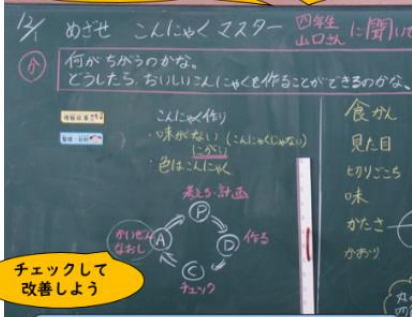 12/1 めざせ こんにゃくマスター 四年生 山口さんに聞いて
分 何がちがうのかな。
どうしたら、おいしいこんにゃくを作ることができるのかな。
こんにゃく作り
・味がない(こんにゃくじゃない)
にがい
・色はこんにゃく
考える・計画
P
D 作る
C
チェック
A
かいぜん
なおし
食かん
見た目
切りごこち
味
かたさ
かおり
チェックして
改善しよう